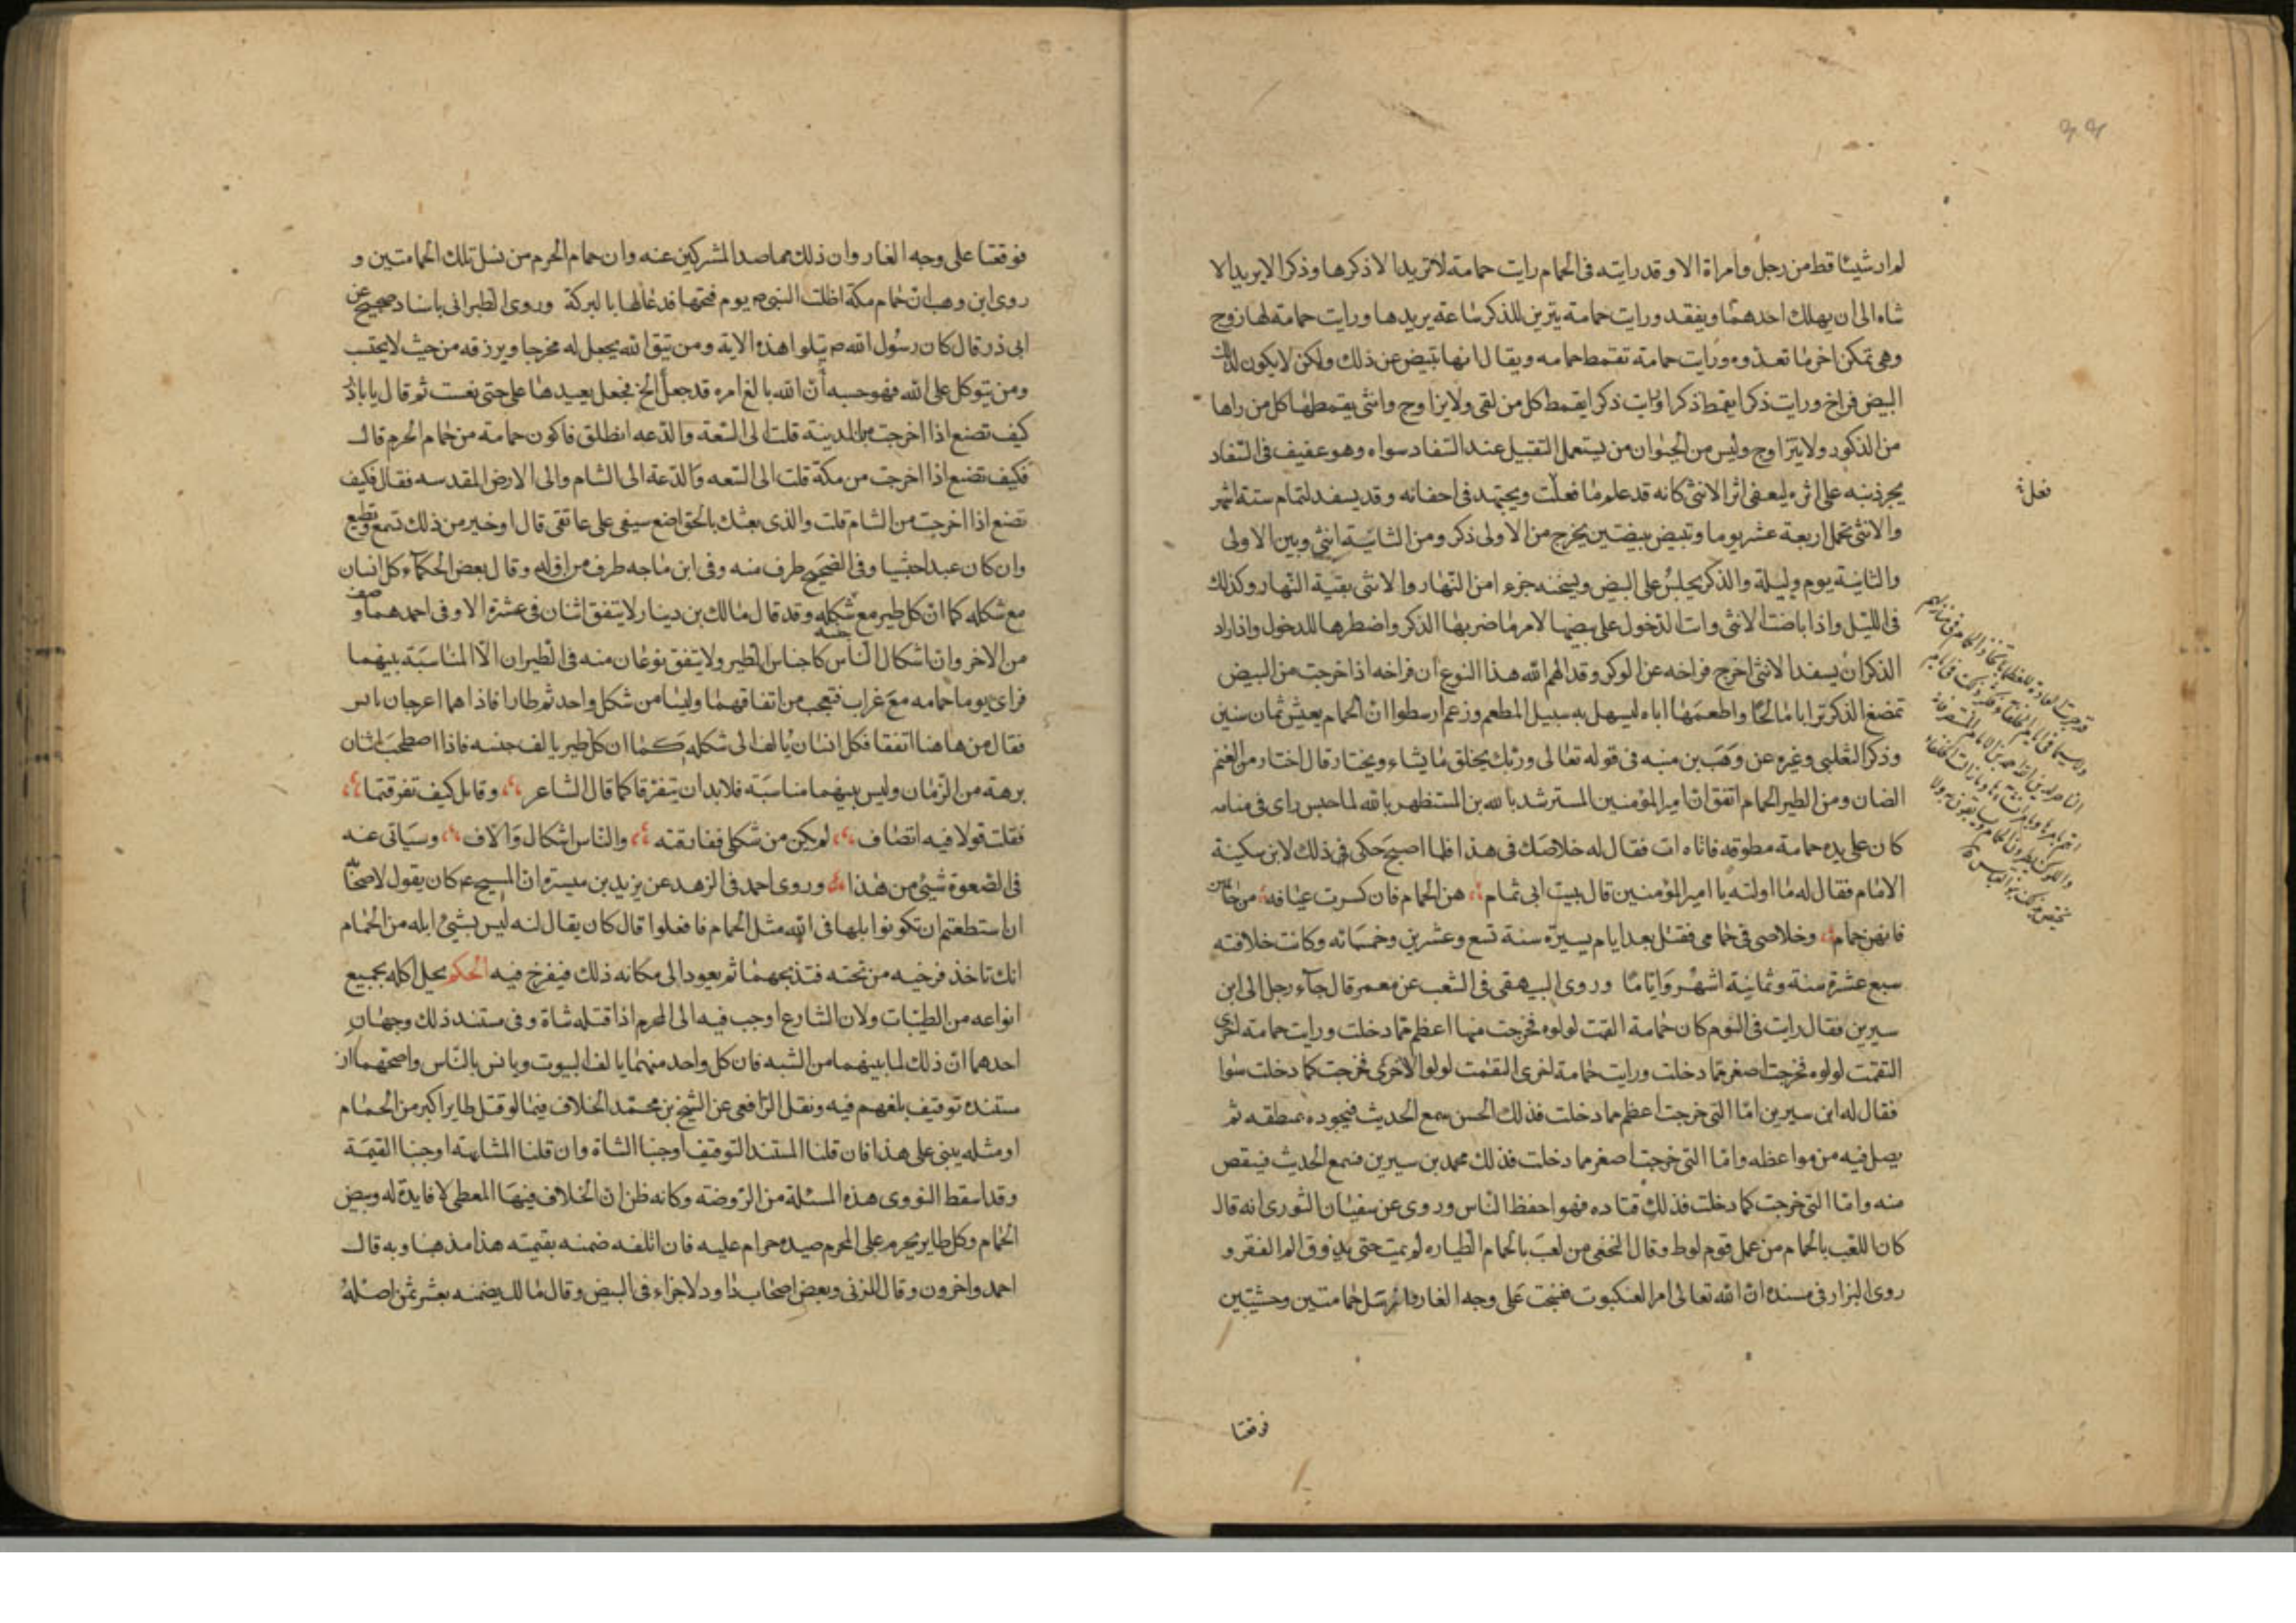 لم ار شيئا قط من رجل وامراة الا وقد رايته فى الحمام رايت حمامة لا تريد الا ذكرها وذكرا لا يريد الا
شاه الى ان يهلك احدهما ويفقد ورايت حمامة يتزين للذكر ساعة يريدها ورايت حمامة لها زوج
وهى تمكن اخر ما تعدوه ورايت حمامة تقمط حمامه ويقال انها تبيض عن ذلك ولكن لا يكون لذلك
البيض فراخ ورايت ذكرا يقمط ذكرا ورايت ذكرا يقمط كل من لقى ولا يزاوج وانثى يقمطها كل من راها
من الذكور ولا يتزاوج وليس من الحيوان من يستعمل التقبيل عند السفاد سواه وهو عفيف فى السفاد
يجر ذنبه على اثره ليعفى اثر الانثى كانه قد علم ما فعلت ويجتهد فى اخفائه وقد يسفد لتمام ستة اشهر
والانثى تحمل اربعة عشر يوما وتبيض بيضتين يخرج من الاولى ذكر ومن الثانية انثى وبين الاولى
والثانية يوم وليلة والذكر يجلس على البيض ويسخنه جزءا من النهار والانثى بقية النهار وكذلك
فى الليل واذا باضت الانثى وابت الدخول على بيضها لامر ما ضربها الذكر واضطرها للدخول واذا اراد
الذكر ان يسفد الانثى اخرج فراخه عن الوكر وقد الهم الله هذا النوع ان فراخه اذا خرجت من البيض
تمضغ الذكر ترابا مالحا واطعمها اياه ليسهل به سبيل المطعم وزعم ارسطوا ان الحمام يعيش ثمان سنين
وذكر الثعلبى وغيره عن وهب بن منبه فى قوله تعالى وربك يخلق ما يشاء ويختار قال اختار من الغنم
الضان ومن الطير الحمام اتفق ان امير المؤمنين المسترشد بالله بن المستظهر بالله لما حبس راى فى منامه
كان على يده حمامة مطوقة فاتاه ات فقال له خلاصك فى هذا فلما اصبح حكى فى ذلك لابن سكينة
الامام فقال له ما اولته يا امير المؤمنين قال ببيت ابى تمام هن الحمام فان كسرت عيافة من حائهن
فانهن حمام وخلاصى فى حمامى فقتل بعد ايام يسيرة سنة تسع وعشرين وخمسمائه وكانت خلافته
سبع عشرة سنة وثمانية اشهر واياما وروى البيهقى فى الشعب عن معمر قال جآء رجل الى ابن
سيرين فقال رايت فى النوم كان حمامة القمت لولوه فخرجت منها اعظم مما دخلت ورايت حمامة اخرى
التقمت لولوه فخرجت اصغر مما دخلت ورايت حمامة اخرى التقمت لولو الاخرى فخرجت كما دخلت سوا
فقال له ابن سيرين اما التى خرجت اعظم مما دخلت فذلك الحسن يسمع الحديث فيجوده بمنطقه ثم
يصل فيه من مواعظه واما التى خرجت اصغر مما دخلت فذلك محمد بن سيرين فسمع الحديث فينقص
منه واما التى خرجت كما دخلت فذلك قتاده فهو احفظ الناس وروى عن سفيان الثورى انه قال
كان اللعب بالحمام من عمل قوم لوط وقال النخعى من لعب بالحمام الطياره لم يمت حتى يذوق الم الفقر و
روى البزار فى مسنده ان الله تعالى امر العنكبوت فنسجت على وجه الغار وارسل حمامتين وحشيتين
فعلة
فوقفتا
فوقفتا على وجه الغار وان ذلك مما صد المشركين عنه وان حمام الحرم من نسل تلك الحمامتين و
روى ابن وهب ان حمام مكة اظلت النبى ص يوم فتحها فدعا لها بالبركة وروى الطبرانى باسناد صحيح عن
ابى ذر قال كان رسول الله ص يتلوا هذه الاية ومن يتق الله يجعل له مخرجا ويرزقه من حيث لا يحتسب
ومن يتوكل على الله فهو حسبه أن الله بالغ امره قد جعل الخ فجعل يعيدها على حتى نعست ثم قال يا باذر
كيف تصنع اذا اخرجت من المدينة قلت الى السعة والدعه انطلق فاكون حمامة من حمام الحرم قال
فكيف تصنع اذا اخرجت من مكة قلت الى السعه والدعة الى الشام والى الارض المقدسه فقال فكيف
تصنع اذا اخرجت من الشام قلت والذى بعثك بالحق اضع سيفى على عاتقى قال او خير من ذلك تسمع وتطيع
وان كان عبدا حبشيا وفى الصحيح طرف منه وفى ابن ماجه طرف من اوله وقال بعض الحكمآء كل انسان
مع شكله كما ان كل طير مع شكله وقد قال مالك بن دينار لا يتفق اثنان فى عشرة الا وفى احدهما وصف
من الاخر وان اشكال الناس كاجناس الطير ولا يتفق نوعان منه فى الطيران الا المناسبة بينهما
فراى يوما حمامه مع غراب فتعجب من اتفاقهما وليسا من شكل واحد ثم طارا فاذا هما اعرجان
فقال من هاهنا اتفقا فكل انسان يالف الى شكله كما ان كل طير يالف جنسه فاذا اصطحب اثنان
برهة من الزمان وليس بينهما مناسبة فلا بد ان يتفرقا كما قال الشاعر وقايل كيف تفرقتما
فقلت قولا فيه انصاف لم يكن من شكلى ففارقته والناس اشكال وآلاف وسياتى عنه
فى الصعوة شئ من هذا وروى احمد فى الزهد عن يزيد بن ميسرة ان المسيح ع كان يقول لاصحابه
ان استطعتم ان تكونوا بلها فى الله مثل الحمام فافعلوا قال كان يقال له ليس بشئ ابله من الحمام
انك تاخذ فرخيه من تحته فتذبحهما ثم يعود الى مكانه ذلك فيفرخ فيه الحكم يحل اكله بجميع
انواعه من الطيبات ولان الشارع اوجب فيه الى المحرم اذا قتله شاة وفى مستند ذلك وجهان
احدهما ان ذلك لما بينهما من الشبه فان كل واحد منهما يالف البيوت ويانس بالناس واصحهما ان
مستنده توقيف بلغهم فيه ونقل الرافعى عن الشيخ بن محمد الخلاف فيما لو قتل طايرا كبر من الحمام
او مثله يبنى على هذا فان قلنا المستند التوقيف اوجبنا الشاة وان قلنا المشابهه اوجبنا القيمة
وقد اسقط النووى هذه المسئلة من الروضة وكانه ظن ان الخلاف فيها لفظى لا فايدة له وبيض
الحمام وكل طاير يحرم على المحرم صيده حرام عليه فان اتلفه ضمنه بقيمته هذا مذهبنا وبه قال
احمد واخرون وقال المزنى وبعض اصحاب داود لا جزاء فى البيض وقال مالك يضمنه بعشر ثمن اصله